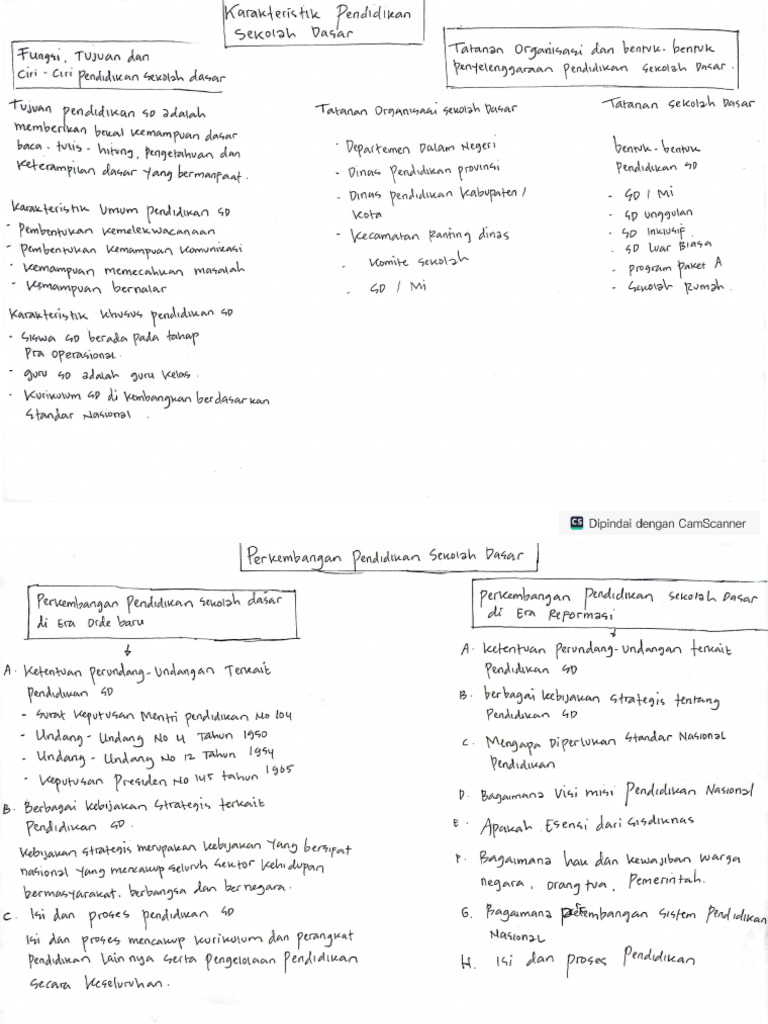 Karakteristik Pendidikan
Sekolah Dasar
Fungsi, Tujuan dan
Ciri-Ciri pendidikan sekolah dasar
Tujuan pendidikan SD adalah
memberikan bekal kemampuan dasar
baca-tulis-hitung, pengetahuan dan
keterampilan dasar yang bermanfaat.
Karakteristik Umum pendidikan SD
- Pembentukan kemelekwacanaan
- Pembentukan kemampuan komunikasi
- kemampuan memecahkan masalah
- kemampuan bernalar
Karakteristik khusus pendidikan SD
- Siswa SD berada pada tahap
Pra operasional.
- guru SD adalah guru kelas.
- Kurikulum SD di kembangkan berdasarkan
Standar Nasional.
Tatanan Organisasi dan bentuk-bentuk
Penyelenggaraan Pendidikan Sekolah Dasar.
Tatanan Organisasi sekolah Dasar
- Departemen Dalam Negeri
- Dinas Pendidikan provinsi
- Dinas pendidikan Kabupaten/
Kota
- Kecamatan Ranting dinas
- Komite sekolah
- SD / Mi
Tatanan sekolah Dasar
bentuk-bentuk
Pendidikan SD
- SD / Mi
- SD unggulan
- SD Inklusif
- SD Luar Biasa
- program Paket A
- Sekolah Rumah.
CS Dipindai dengan CamScanner
Perkembangan Pendidikan Sekolah Dasar
Perkembangan Pendidikan sekolah dasar
di Era Orde baru
A. Ketentuan Perundang-Undangan Terkait
pendidikan SD
- Surat Keputusan Mentri pendidikan No 104
- Undang-Undang No 4 Tahun 1950
- Undang-Undang No 12 Tahun 1954
- Keputusan Presiden No 145 tahun 1965
B. Berbagai Kebijakan Strategis terkait
Pendidikan SD.
Kebijakan strategis merupakan kebijakan yang bersipat
nasional yang mencakup seluruh sektor kehidupan
bermasyarakat, berbangsa dan bernegara.
C. Isi dan proses pendidikan SD
Isi dan proses mencakup kurikulum dan perangkat
Pendidikan lain nya serta Pengelolaan Pendidikan
secara Keseluruhan.
Perkembangan Pendidikan sekolah Dasar
di Era Reformasi
A. Ketentuan perundang-undangan terkait
Pendidikan SD
B. berbagai kebijakan strategis tentang
Pendidikan SD
C. Mengapa Diperlukan Standar Nasional
Pendidikan
D. Bagaimana Visi misi Pendidikan Nasional
E. Apakah Esensi dari Sisdiknas
F. Bagaimana hak dan kewajiban warga
negara, orang tua, Pemerintah.
G. Bagaimana Sistem Pendidikan
Nasional
H. Isi dan proses Pendidikan